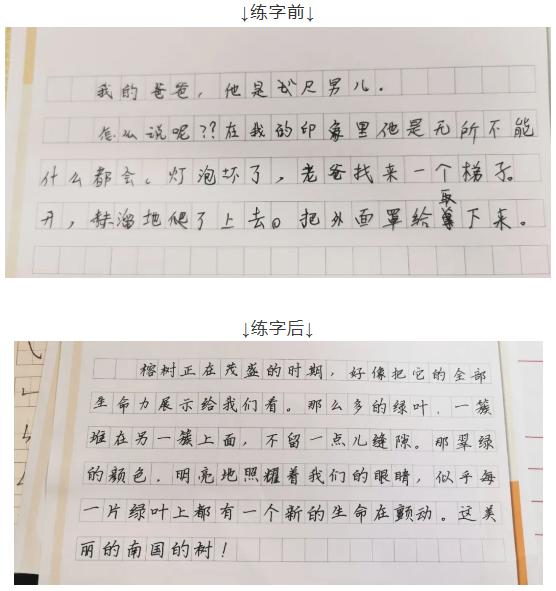 ↓练字前↓
我的爸爸，他是弍尺男儿.
怎么说呢??在我的印象里他是无所不能
什么都会、灯泡坏了，老爸找来一个梯子。
取
开，哧溜地爬了上去。把外面罩给下来。
↓练字后↓
榕树正在茂盛的时期，好像把它的全部
生命力展示给我们看。那么多的绿叶，一簇
堆在另一簇上面，不留一点儿缝隙。那翠绿
的颜色，明亮地照耀着我们的眼睛，似乎每
一片绿叶上都有一个新的生命在颤动。这美
丽的南国的树！